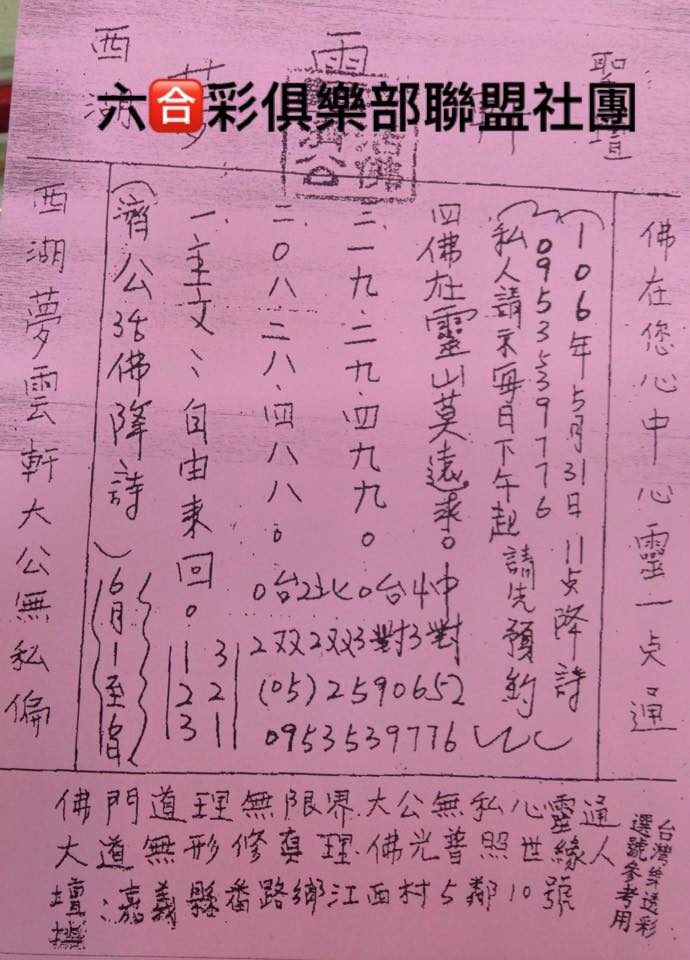 六合彩俱樂部聯盟社團
聖壇
雲
西湖
佛在您心中心靈一点通
106年5月31日11点降詩
0953539776
私人請示每日下午起請先預約
四佛在靈山莫遠求。
三一九.二九.四九九。
二.0八二八.四八八。
一.主文:自由來回。
(濟公活佛降詩)
6月1至日
0台2北0台4中
2双2双3對3對
(05)2590652
0953539776
1 3
2 2
3 1
西湖夢雲軒大公無私偏
佛門道理無限界大公無私心靈通
大道無形修真理佛光普照世緣人
壇:嘉義縣番路鄉江西村5鄰10號
台灣彩透彩
選號參考用